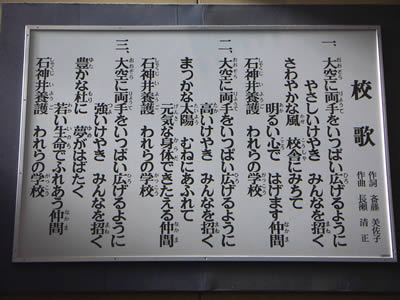 校歌
作詞 斎藤 美佐子
作曲 長瀬 清正
一、大空に両手をいっぱい広げるように
やさしいけやき みんなを招く
さわやかな風 校舎にみちて
明るい心で はげます仲間
石神井養護 われらの学校
二、大空に両手をいっぱい広げるように
高いけやき みんなを招く
まっかな太陽 むねにあふれて
元気な身体できたえる仲間
石神井養護 われらの学校
三、大空に両手をいっぱい広げるように
強いけやき みんなを招く
豊かな杜に 夢がはばたく
若い生命でふれあう仲間
石神井養護 われらの学校